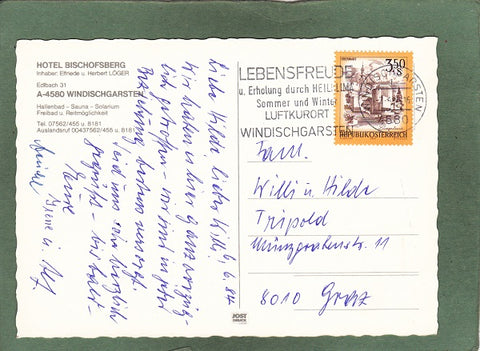 HOTEL BISCHOFSBERG
Inhaber: Elfriede u. Herbert LÖGER
Edlbach 31
A-4580 WINDISCHGARSTEN
Hallenbad – Sauna – Solarium
Freibad u. Reitmöglichkeit
Tel. 07562/455 u. 8181
Auslandsruf 00437562/455 u. 8181
4.6.84
Liebe Hilde! Lieber Willi!
Wir haben es hier ganz vorzüg-
lich getroffen – wir sind in jeder
Beziehung bestens versorgt.
Seid uns sehr herzlich
gegrüßt – bis bald –
LEBENSFREUDE
u. Erholung durch HEILKLIMA
Sommer und Winter
LUFTKURORT
WINDISCHGARSTEN
WINDISCHGARSTEN
4580
3.50
S
REPUBLIK ÖSTERREICH
Fam.
Willi u. Hilde
Tripold
Münzgrabenstr. 11
8010 Graz
JOST
DRUCK